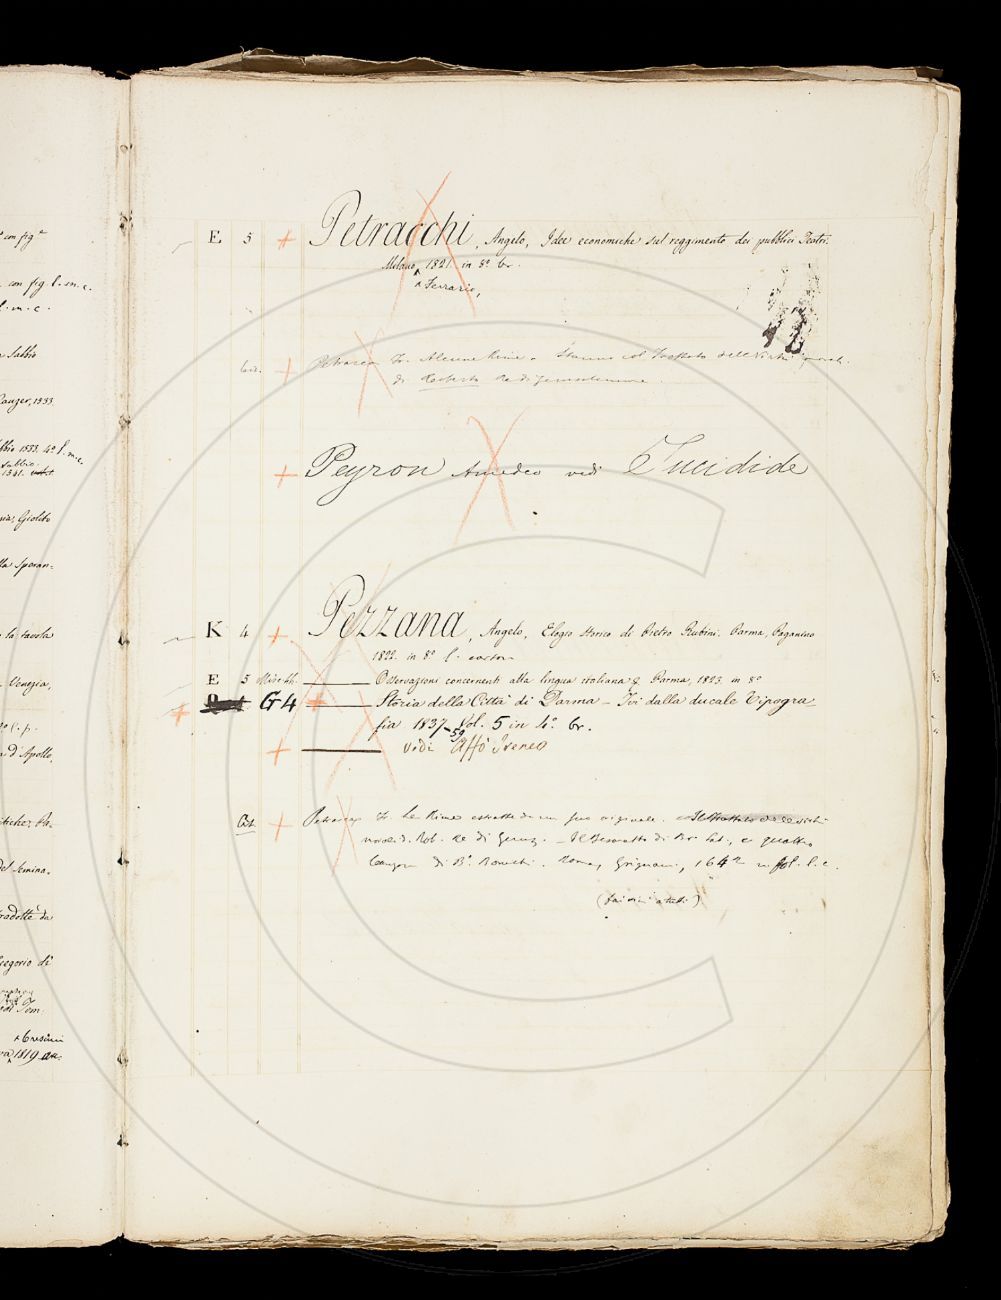 ° con fig.ª
con fig. l. m. c.
l. m. c.
Sabbio
1533.
1533. 4.° l. m. c.
Sabbio.
1541.
Giolito
la Speran-
la tavola
Venezia,
l. p.
d'Apollo,
Pa-
del Semina-
tradotte da
Gregorio di
Tom.
Cresini
1819
E 5 + Petracchi, Angelo, Idee economiche sul reggimento dei pubblici Teatri.
Milano, 1821. in 8.° br.
^ Ferrario,
+ Petrarca Fr. Alcune Rime. Stanno col Trattato delle Virtù morali
di Roberto Re di Gerusalemme.
+ Peyron Amedeo vedi Tucidide
K 4 + Pezzana, Angelo, Elogio storico di Pietro Rubini. Parma, Paganino
1822. in 8.° l. carton.
E 5 Misc. ——— Osservazioni concernenti alla lingua italiana &. Parma, 1823. in 8.°
+ G 4 + ——— Storia della Città di Parma - Ivi dalla ducale Tipogra
fia 1837-59 Vol. 5 in 4.° br.
+ ——— vedi Affò Ireneo
+ Petrarca Fr. Le Rime estratte da un suo originale. Il Trattato delle virtù
morali di Rob. Re di Gerus. - Il Tesoretto di Br. Lat., e quattro
Canzoni di B. Bonichi. Roma, Grignani, 1642 in fol. l. c.